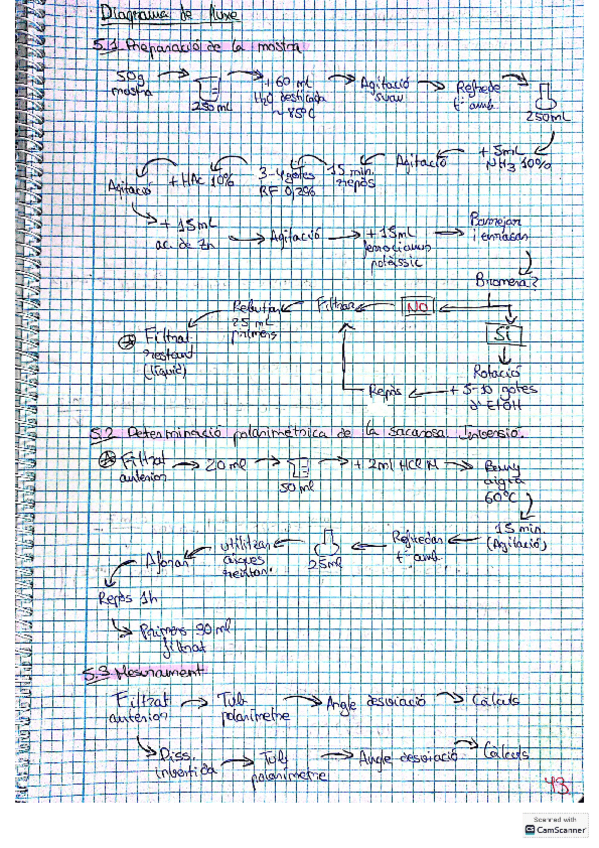 Diagrama de fluxe
5.1 Preparació de la mostra
50g mostra → 250mL → + 60 mL H2O destil·lada ~ 85ºC → Agitació suau → Refreda tª amb. → 250mL
+ 5mL NH3 10% → Agitació → 15 min. repòs → 3-4 gotes RF 0,2% → + HAc 10% → Agitació
+ 15mL ac. de Zn → Agitació → + 15mL ferrocianur potàssic → Barrejar i enrasar
Bromera?
NO → Filtrar → Rebutjar 25 mL primers → Filtrat restant (líquid)
SÍ
Rotació
+ 5-10 gotes d'EtOH → Repòs
5.2 Determinació polarimètrica de la sacarosa. Inversió.
Filtrat anterior → 20 ml → 50 ml → + 2ml HCl N → Bany aigua 60ºC
15 min. (Agitació) → Refredar tª amb. → 25ml → utilitzar aigües → Aforar
Repòs 1h
Primers 30 ml filtrat
5.3 Mesurament
Filtrat anterior → Tub polarímetre → Angle desviació → Càlculs
Diss. invertida → Tub polarímetre → Angle desviació → Càlculs
43
Scanned with
CamScanner